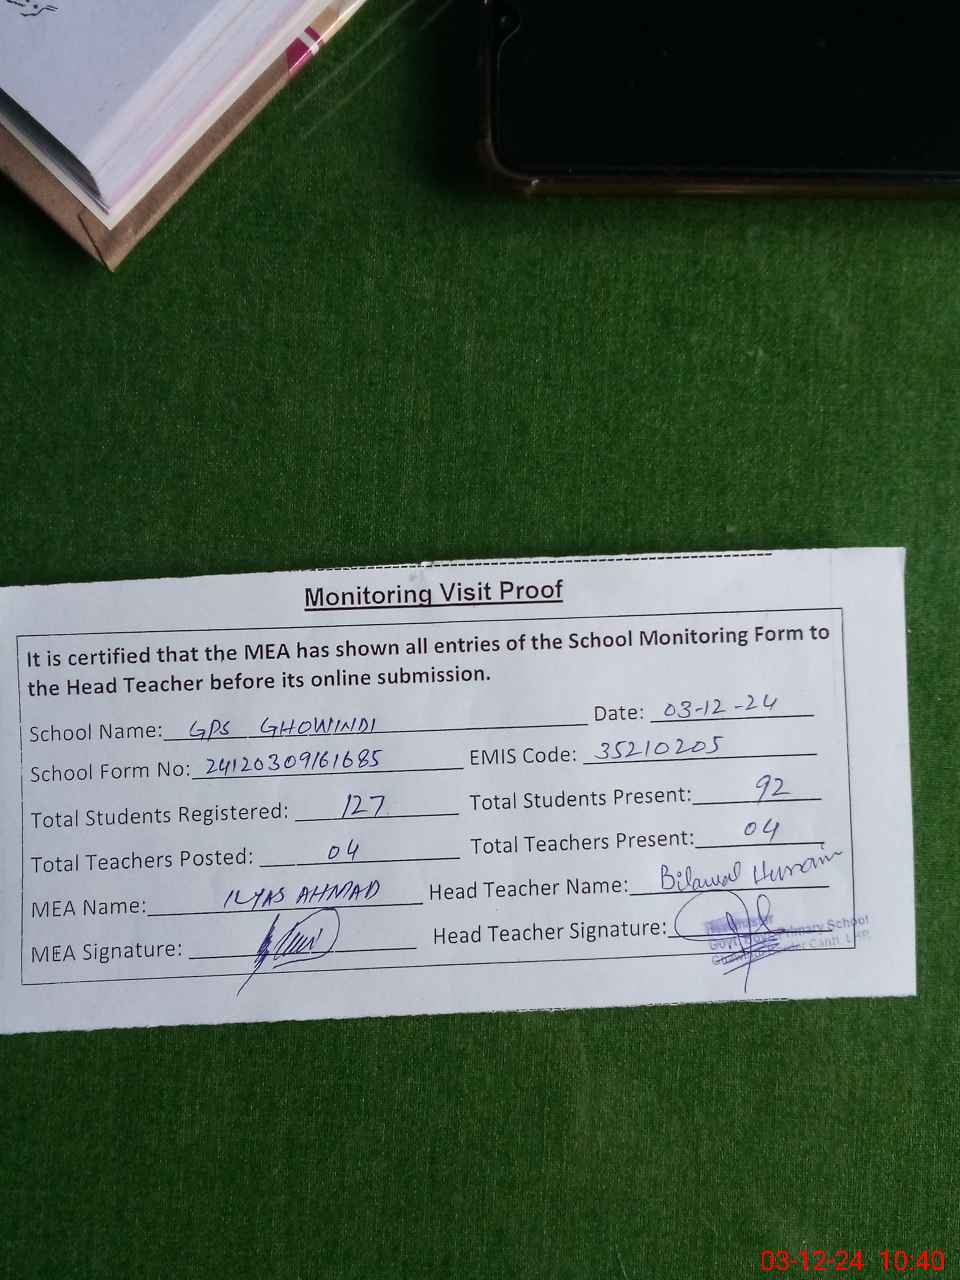 Monitoring Visit Proof
It is certified that the MEA has shown all entries of the School Monitoring Form to
the Head Teacher before its online submission.
School Name: GPS GHOWINDI Date: 03-12-24
School Form No: 24120309161685 EMIS Code: 35210205
Total Students Registered: 127 Total Students Present: 92
Total Teachers Posted: 04 Total Teachers Present: 04
MEA Name: ILYAS AHMAD Head Teacher Name: Bilawal Hussain
MEA Signature: Head Teacher Signature:
Govt. Primary School
Cantt.
03-12-24 10:40